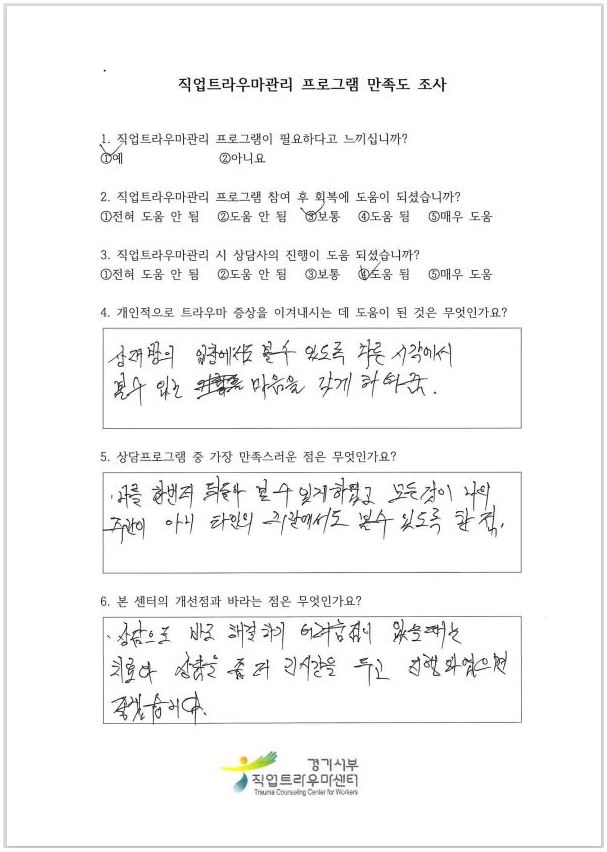 직업트라우마관리 프로그램 만족도 조사
1. 직업트라우마관리 프로그램이 필요하다고 느끼십니까?
①예 ②아니요
2. 직업트라우마관리 프로그램 참여 후 회복에 도움이 되셨습니까?
①전혀 도움 안 됨 ②도움 안 됨 ③보통 ④도움 됨 ⑤매우 도움
3. 직업트라우마관리 시 상담사의 진행이 도움 되셨습니까?
①전혀 도움 안 됨 ②도움 안 됨 ③보통 ④도움 됨 ⑤매우 도움
4. 개인적으로 트라우마 증상을 이겨내시는 데 도움이 된 것은 무엇인가요?
상대방의 입장에서도 볼수 있도록 다른 시각에서
볼수 있는 마음을 갖게 하
5. 상담프로그램 중 가장 만족스러운 점은 무엇인가요?
나를 한번더 뒤돌아 볼수 있게하였고 모든것이 나의
주관이 아니 타인의 주관에서도 볼수 있도록 한 점.
6. 본 센터의 개선점과 바라는 점은 무엇인가요?
상담으로 바로 해결하기 어려운점이 있을때는
치료와 상담을 좀 더 긴시간을 두고 진행되었으면
좋겠습니다.
경기서부
직업트라우마센터
Trauma Counseling Center for Workers